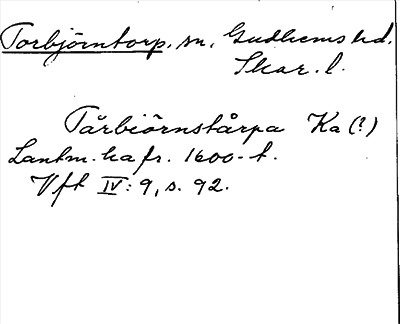 Torbjörntorp, sn, Gudhems hd.
Skar. l.
Tårbiörnstårpa Ka (?)
Lantm. ka fr. 1600-t.
Vft IV: 9, s. 92.